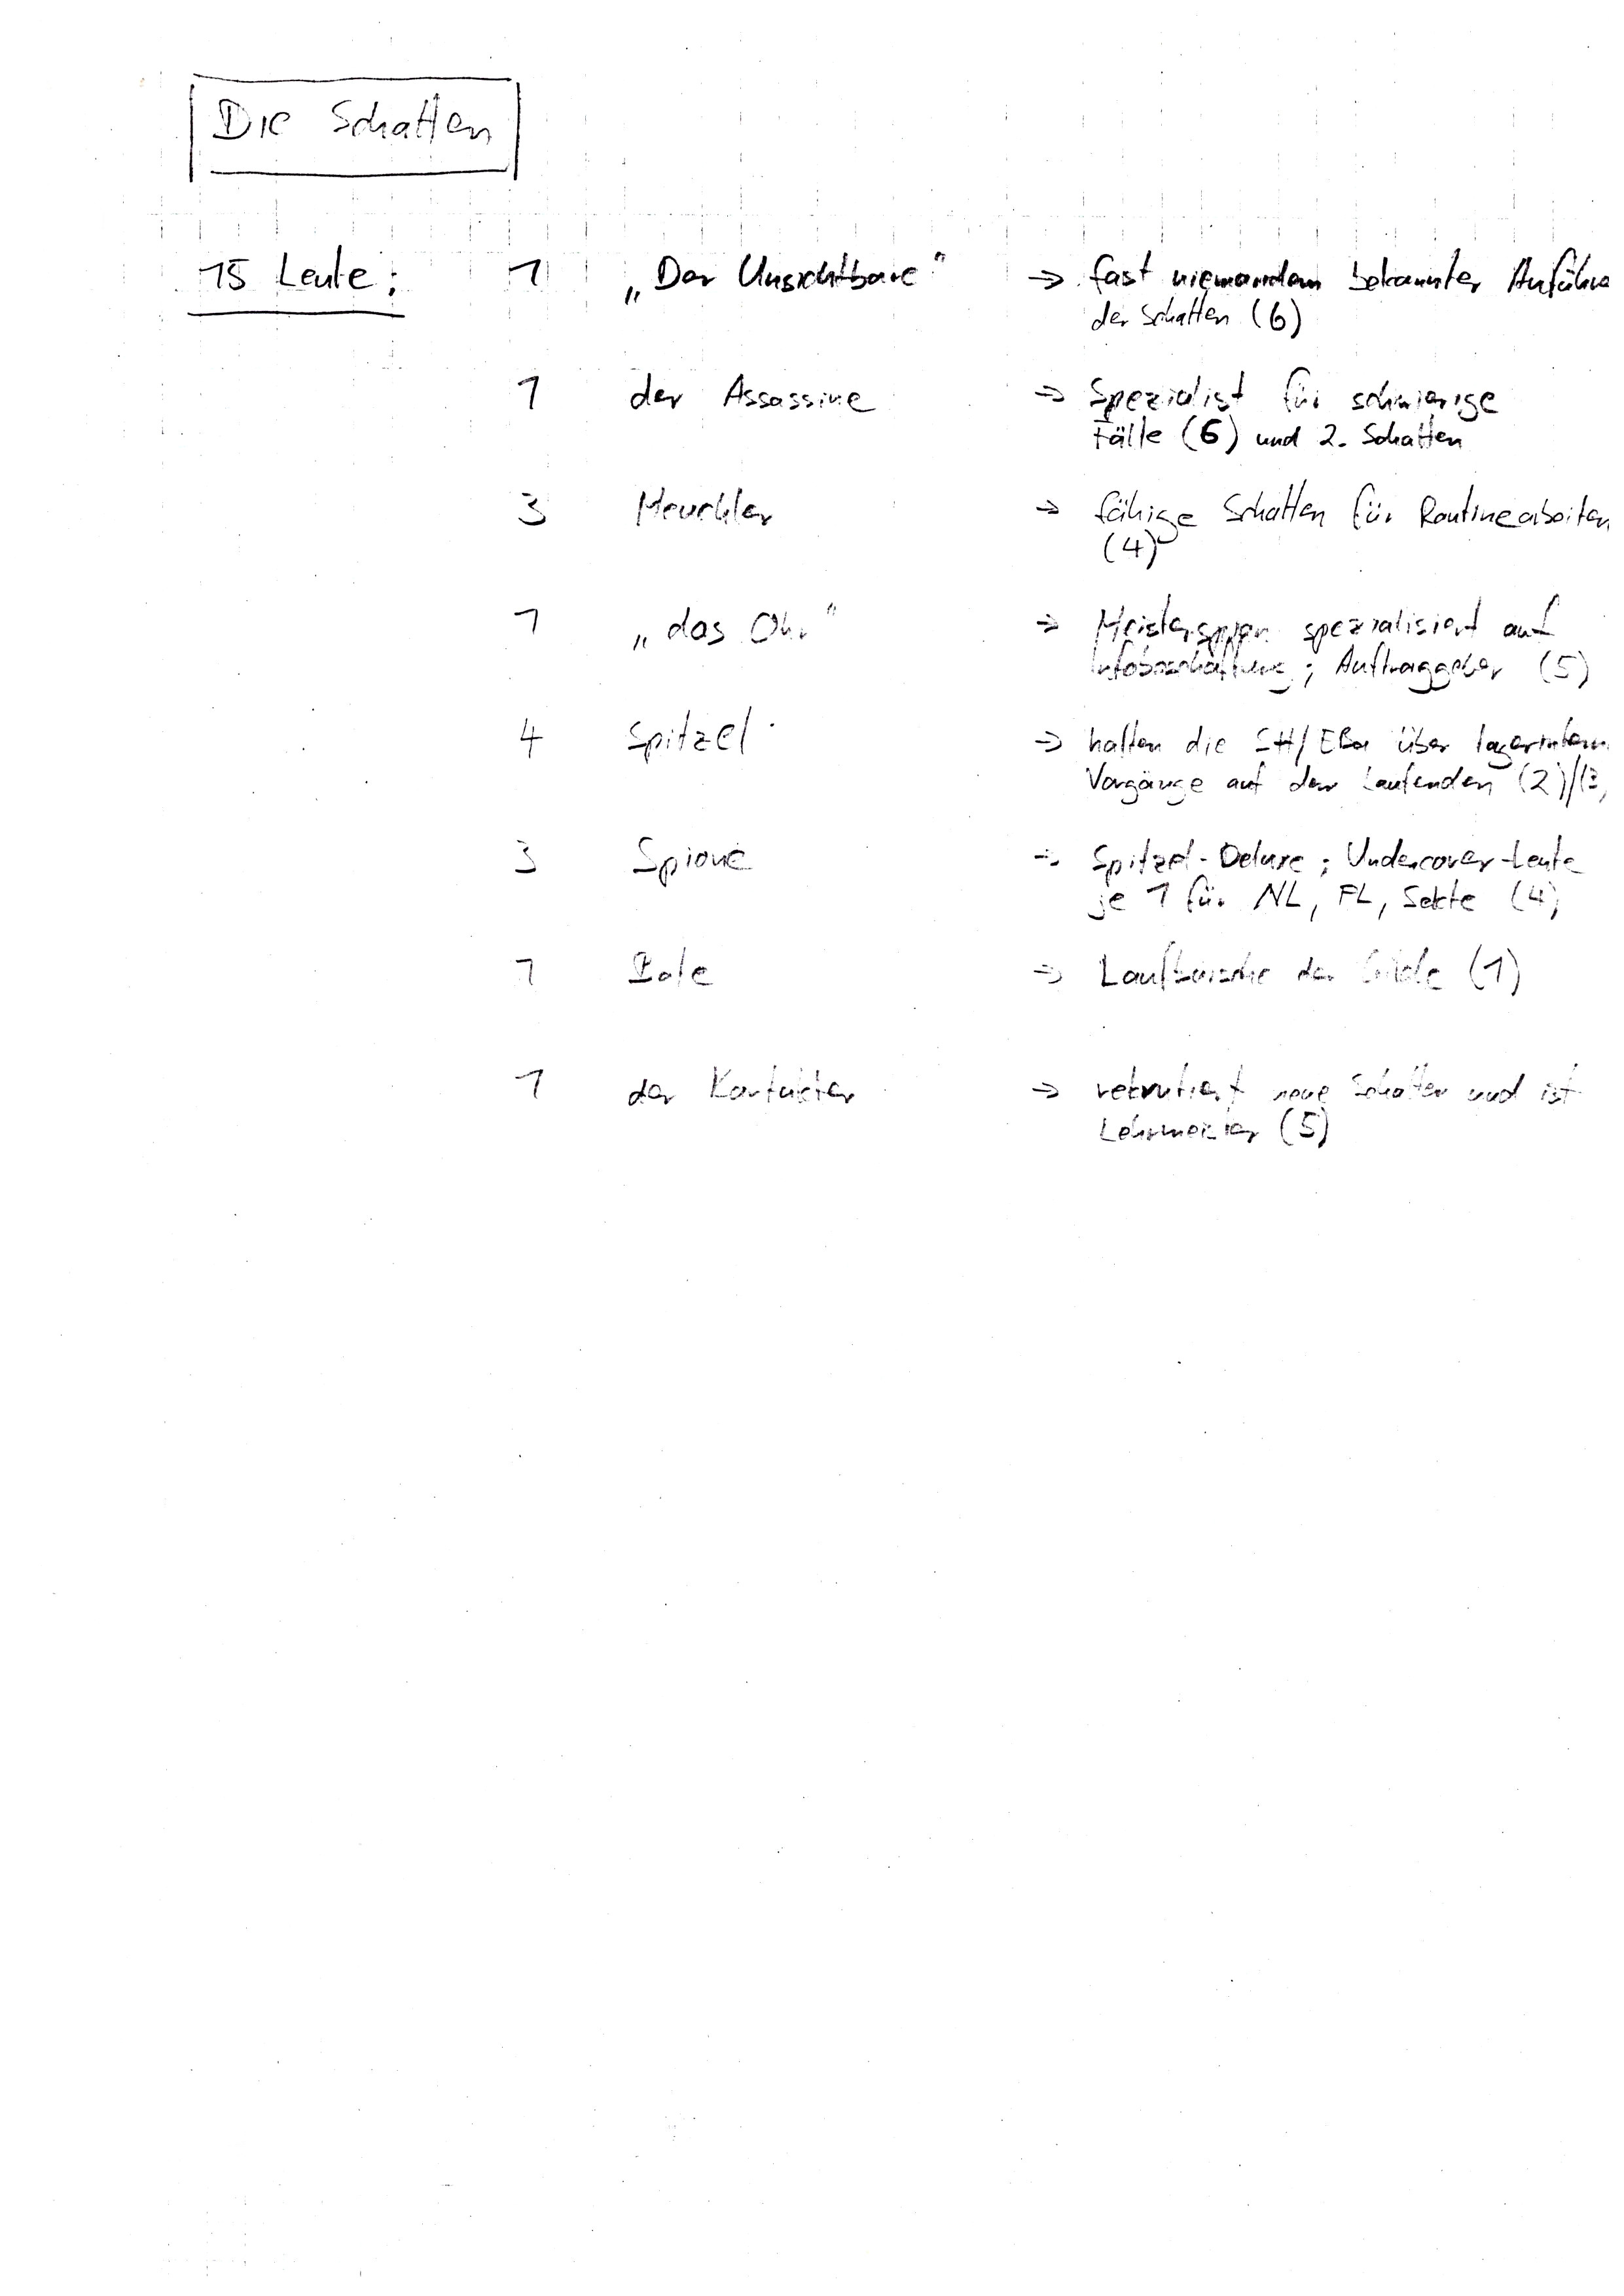 Die Schatten
15 Leute: 1 „Der Unsichtbare" → fast niemandem bekannter Anführe
der Schatten (6)
1 der Assassine → Spezialist für schwierige
Fälle (6) und 2. Schatten
3 Meuchler → fähige Schatten für Routinearbeiten
(4)
1 „das Ohr" → Meisterspion spezialisiert auf
Infobeschaffung; Auftraggeber (5)
4 Spitzel → halten die über lagerintern
Vorgänge auf dem Laufenden (2)/(3)
3 Spione → Spitzel-Deluxe; Undercover-Leute
je 1 für NL, FL, Sekte (4)
1 Bote → Laufbursche der Gilde (1)
1 der Kontakter → rekrutiert neue Schatten und ist
Lehrmeister (5)